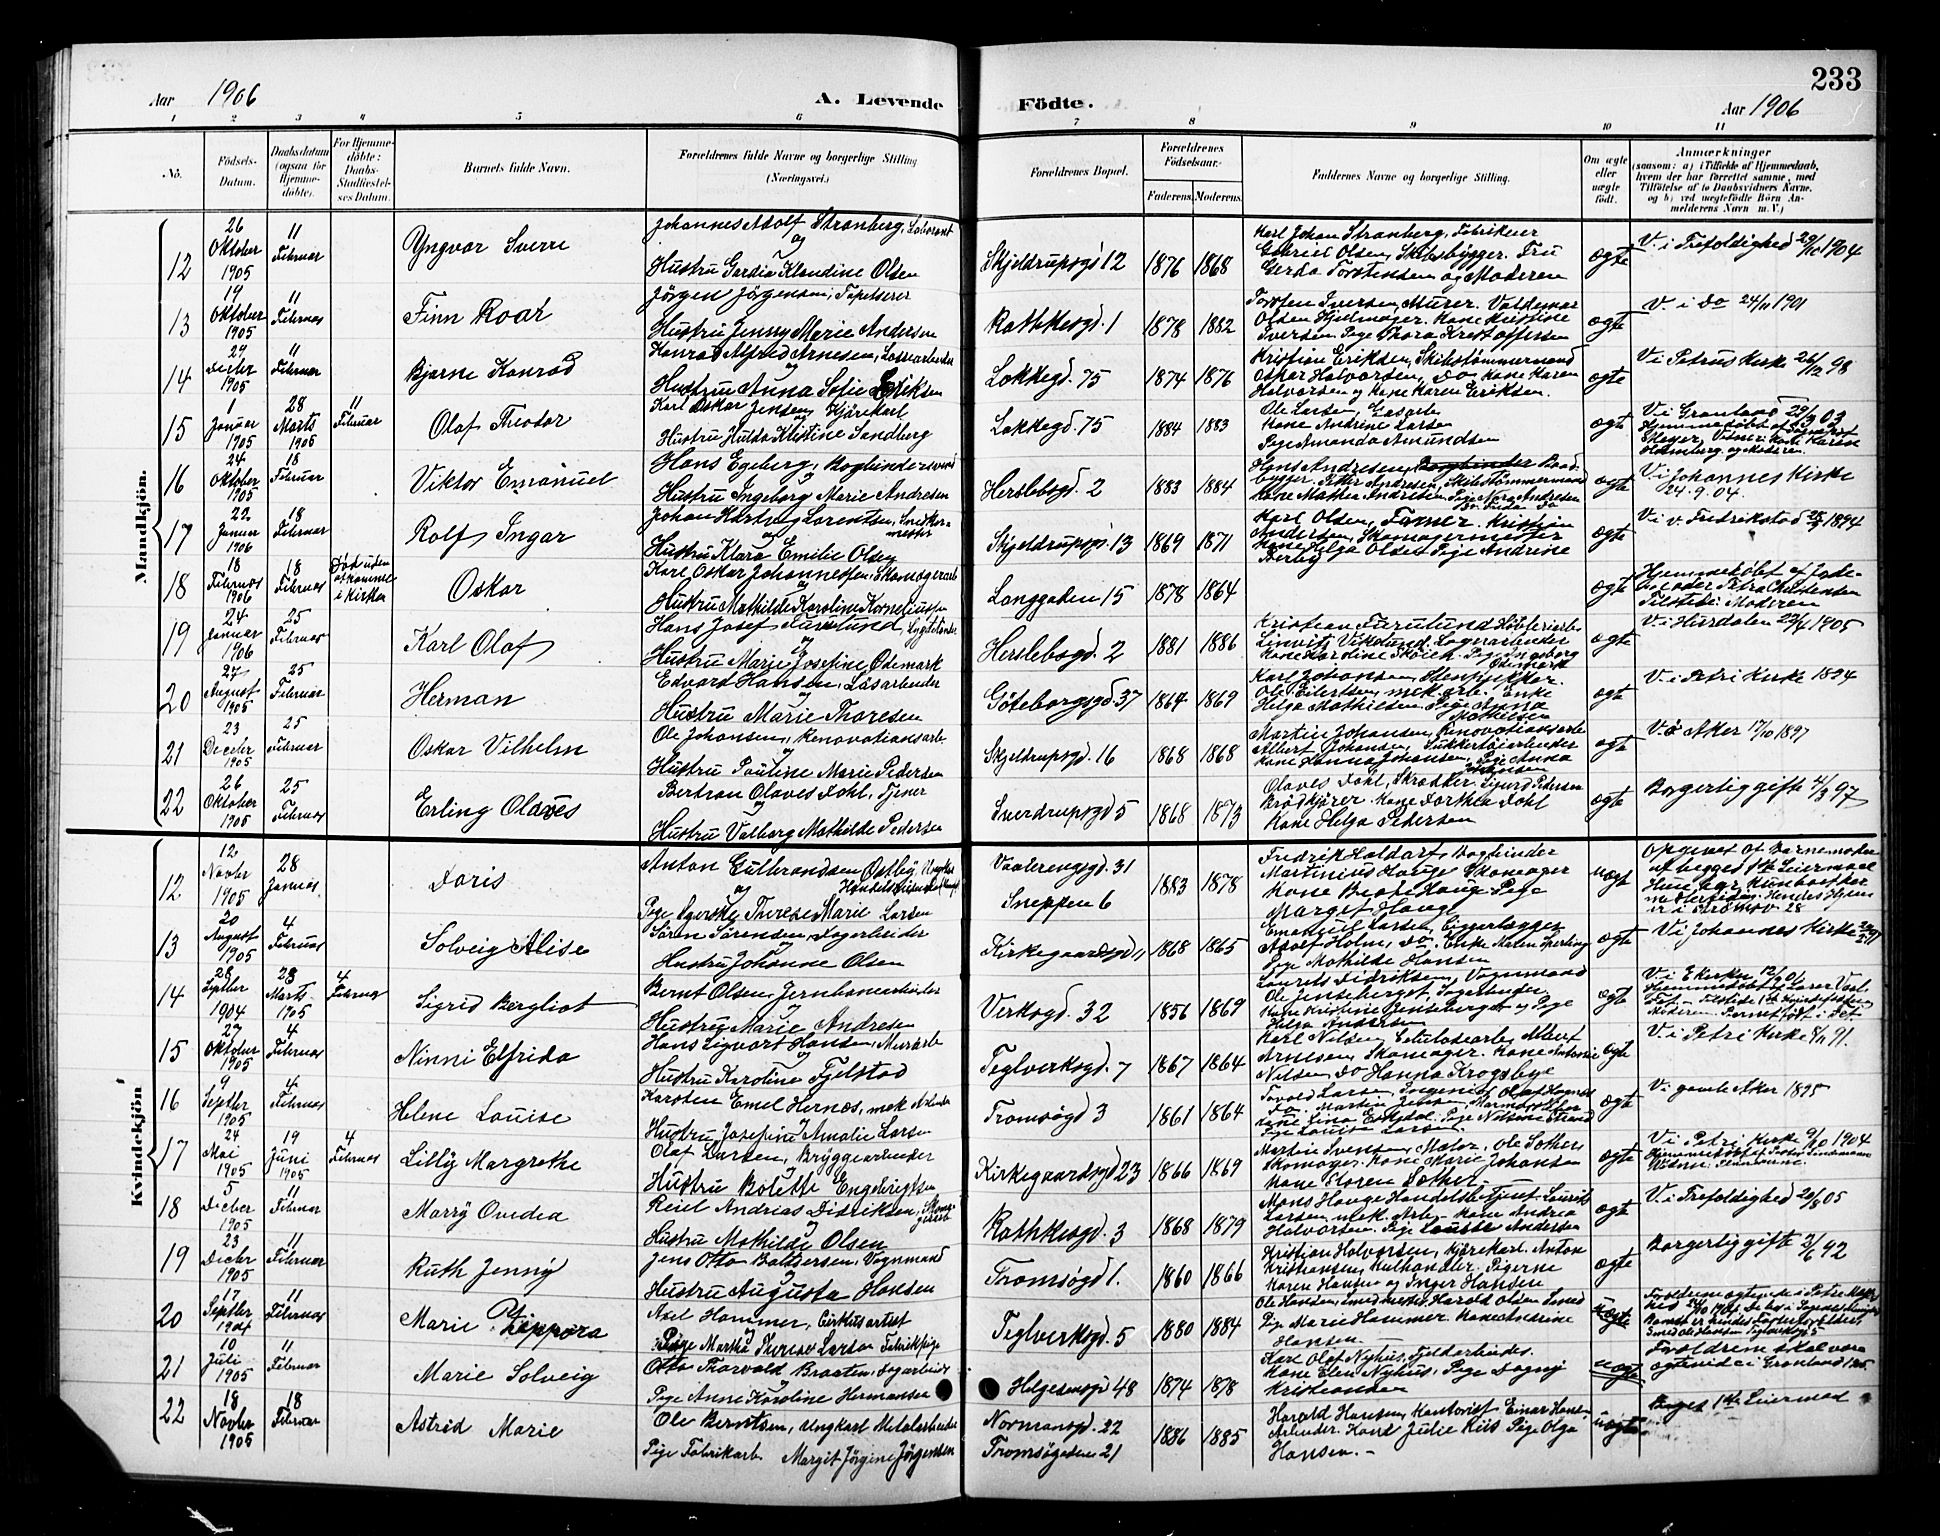 Aar 1906
A. Levende Födte.
233
Aar 1906
1 2 3 4 5 6 7 8 9 10 11
No.
Födsels-Datum.
Daabsdatum (ogsaa for Hjemmedöbte).
For Hjemmedöbte: Daabs-Stadfæstelses Datum.
Barnets fulde Navn.
Forældrenes fulde Navne og borgerlige Stilling (Næringsvei.)
Forældrenes Bopæl.
Forældrenes Födselsaar.
Faderens. Moderens.
Faddernes Navne og borgerlige Stilling.
Om ægte eller uægte födt.
Anmærkninger
(saasom: a) i Tilfælde af Hjemmedaab, hvem der har forrettet samme, med Tilföielse af to Daabsvidners Navne. og b) ved uægtefödte Börn Anmelderens Navn m. V.)
Mandkjön.
12 26 Oktober 1905 11 Februar Yngvar Sverre Johannes Adolf Stranberg, Laborant og Hustru Gardia Klaudine Olsen Skjeldrupsgd 12 1876 1868 Karl Johan Stranberg, Fabrikeier Gabriel Olsen, Skibsbygger. Fru Gerda Torstensen og Moderen ægte V. i Trefoldighed 1904
13 19 Oktober 1905 11 Februar Finn Roar Jörgen Jörgensen, Tapetserer Hustru Jenny Marie Andersen Rathkesgd. 1 1878 1882 Torsten Iversen, Murer. Valdemar Olsen Hjulmager. Kone Kristine Iversen Pige Thora Kristoffersen ægte V. i Do 24/11 1901
14 27 Decbr 1905 11 Februar Bjarne Konrad Konrad Alfred Arnesen, Lossearbeider og Hustru Anna Sofie Eriksen Lakkegd. 75 1874 1876 Kristian Eriksen, Skibstømmermand Oskar Halvorsen, Do Kone Karen Halvorsen og Kone Karen Eriksen. ægte V i Petrus Kirke 26/12 98
15 1 Januar 1905 28 Marts 1905 11 Februar Olaf Theodor Karl Oskar Jensen, Kjörekarl og Hustru Hulda Kristine Sandberg Lakkegd. 75 1884 1883 Ole Larsen, Gasarb. Kone Andrine Larsen Pige Amanda Amundsen ægte V. i Grønland 29/3 03 Hjemmedöbt af Sognepr. Meyer, Vidner: Karen Holmberg og Moderen.
16 24 Oktober 1905 18 Februar Viktor Emanuel Hans Egeberg, Bogbindersvend og Hustru Ingeborg Marie Andresen Herslebsgd. 2 1883 1884 Hans Andresen, Baadbygger. Peter Andresen, Skibstømmermand Kone Mathea Andresen Pige Nora Andresen ægte V i Johannes Kirke 24.9.04.
17 22 Januar 1906 18 Februar Rolf Ingar Johan Hartvig Lorentsen, Snedkermester og Hustru Klara Emilie Olsen Skjeldrupsgd. 13 1869 1871 Karl Olsen, Farver. Kristian Andersen, Skomagermester Kone Helga Olsen Pige Andrine Berby ægte V i v. Fredrikstad 1894
18 18 Februar 1906 18 Februar Död uden at komme i Kirken Oskar Karl Oskar Johannessen, Skomagerarb og Hustru Mathilde Karoline Korneliussen Langgaden 15 1878 1864 ægte Hjemmedöbt af Jordemoder Petra Christensen Tilstede: Moderen
19 24 Januar 1906 25 Februar Karl Olaf Hans Josef Furulund, Lygtetænder og Hustru Marie Josefine Ødemark Herslebsgd. 2 1881 1886 Kristian Furulund, Høvleriarb. Linvik Vikslund, Lagerarbeider Kone Karoline Skøien. Pige Ingeborg Ødemark ægte V. i Hurdalen 1905
20 27 August 1905 25 Februar Herman Edvard Hansen, Lasarbeider og Hustru Marie Thoresen Göteborgsgd 37 1864 1869 Karl Johansen, Stenpikker. Ole Eilertsen, mek arb. Enke Helga Mathilsen Pige Anna Mathilsen ægte V. i Petri Kirke 1894
21 23 Decbr 1905 25 Februar Oskar Vilhelm Ole Johansen, Renovationsarb. og Hustru Pauline Marie Pedersen Skjeldrupsgd. 16 1868 1868 Martin Johansen, Renovationsarb Albert Johansen, Sukkertøiarbeider Kone Hanna Johansen, Pige Anna Johansen ægte V. Ø Aker 17/10 1897
22 26 Oktober 1905 25 Februar Erling Olaves Bertran Olaves Dahl, Tjener og Hustru Valborg Mathilde Pedersen Sverdrupsgd 5 1868 1873 Olaves Dahl, Skrædder. Sigurd Pedersen Brødkjører. Kone Dorthea Dahl Kone Helga Pedersen ægte Borgerlig gifte 4/3 97
Kvindekjön
12 12 Novbr 1905 28 Januar Doris Anton Gulbrandsen Østby, Ungkar Handelsreisende og Pige Syerske Therese Marie Larsen Vaalerengsgd. 31 Sneppen 6 1883 1878 Fredrik Haldorf, Bogbinder Martinius Hauge Skomager Kone Beate Hauge Pige Margit Hauge uægt Opgivet at Barnemoder
13 20 August 1905 4 Februar Solveig Alise Sören Sörensen, Sagarbeider og Hustru Johanne Olsen Kirkegaardsgd 11 1868 1865 Emanuel Larsen, Ciggarlægger Adolf Holm, Do. Enke Maren Sperling Pige Mathilde Hansen ægte V i Johannes Kirke
14 28 Septbr 1904 28 Marts 1905 4 Februar Sigrid Bergliot Bernt Olsen, Jernbanearbeider og Hustru Marie Andresen Verksgd. 32 1856 1869 Laurits Didriksen, Vognmand Ole Jenseberget, Sagarbeider. Kone Kristine Jenseberget og Pige Helga Andersen ægte
15 27 Oktober 1905 4 Februar Ninni Elfrida Hans Sigvart Hansen, Murarb og Hustru Karoline Fjelstad Teglverksgd. 7 1867 1864 Karl Nilsen, Celuloasearb. Albert Arnesen, Skomager. Kone Antonie Nilsen Do Hanna Krogsbye ægte V. i Petri Kirke 8/11 91.
16 9 Septbr 1905 4 Februar Helene Louise Karsten Emel Hernæs, mek Arbeider og Hustru Josefine Amalie Larsen Tromsøgd 3 1861 1864 ægte V. gamle Aker 1895
17 24 Mai 1905 19 Juni 1905 4 Februar Lilly Margrethe Olaf Larsen, Bryggearbeider Hustru Bolette Engebrigtsen Kirkegaardsgd 23 1866 1869 Martin Svensen, Maler, Ole Sother Skomager. Kone Marie Johansen Kone Floren Sother. ægte V i Petri Kirke 9/10 1904
18 5 Decbr 1905 11 Februar Marry Ovedea Reiel Andrias Didriksen, og Hustru Mathilde Olsen Rathkesgd. 3 1868 1879 Mons Hauge Handelsbetjent Laurits Larsen mek. Arb. Kone Andrea Halvorsen Pige Laurits Andersen ægte V. i Trefoldighed 20/8 05
19 23 Decbr 1905 11 Februar Ruth Jenny Jens Otto Baltsersen, Vognmand og Hustru Augusta Hansen Tromsøgd 1. 1860 1866 Kristian Halvorsen, Kjörekarl. Anton Kristiansen, Kulhandler. Pigerne Karen Hansen og Inger Hansen ægte Borgerlig gifte 3/6 92
20 17 Septbr 1904 11 Februar Marie Zippora Axel Hammer, Cirkusartist og Pige Martha Therese Larsen Fabrikpige Teglverksgd. 5 1880 1884 Ole Hansen, Smedmester Harald Olsen Smed Pige Marie Hammer. Kone Andrine Hansen uægte
21 10 Juli 1905 11 Februar Marie Solveig Otto Thorvald Braaten, Sagarbeider og Pige Anne Karoline Hermansen Helgesensgd 48 1874 1878 Karl Olaf Nyhus, Filderbeider. Kone Elen Nyhus, Pige Dagny Kristiansen uægte Forældrene skal være ægteviede i Grønland 1905
22 18 Novbr 1905 18 Februar Astrid Marie Ole Berntsen, Ungkarl Metalarbeider Pige Fabrikarb. Margit Jörgine Jörgensen Normansgd. 22 Tromsøgaden 21 1886 1885 Harald Hansen, Kontorist Einar Hansen Arbeider. Kone Julie Riis Pige Olga Hansen. uægte Begges 1ste Leiermaal